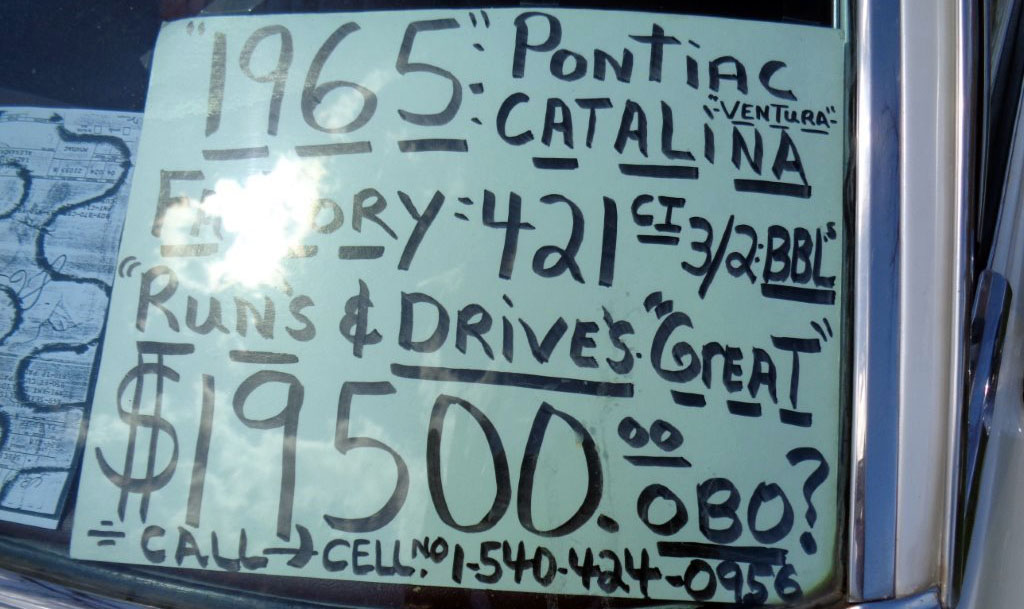 "1965": Pontiac
CATALiNA "VENTURA"
FACTORY: 421 CI 3/2:BBL's
"RUN'S & DRIVE'S "GREAT"
$19500.00 OBO?
÷ CALL → CELL. NO 1-540-424-0956